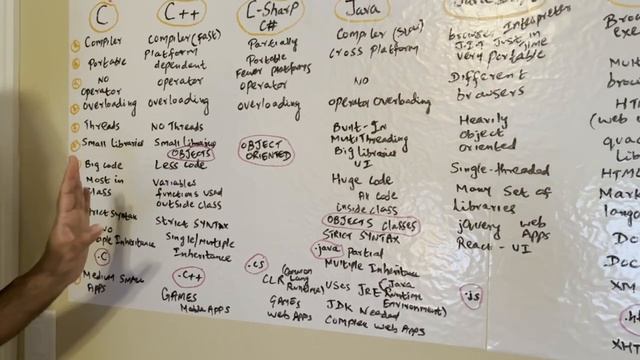 C
Compiler
Portable
NO
operator
overloading
Threads
Small Libraries
Big code
Most in
Class
Strict Syntax
NO
.C
Medium
Apps
C++
Compiler (fast)
Platform
dependent
operator
overloading
NO Threads
Small Libraries
OBJECTS
Less Code
Variables
functions used
outside class
Strict SYNTAX
Single/Multiple
Inheritance
.C++
GAMES
Mobile Apps
C-Sharp
C#
Partially
Portable
Fewer platforms
operator
overloading
OBJECT
ORIENTED
.cs
Common
Lang
Runtime)
CLR
GAMES
Web APPS
Java
Compiler (Slow)
Cross platform
NO
operator overloading
Built-In
MultiThreading
Big libraries
UI
Huge Code
All code
inside class
OBJECTS Classes
STRICT SYNTAX
.java
Partial
Multiple Inheritance
USES JRE (Java
Runtime
Environment)
JDK Needed
Complex Web APPS
browser, Interpreter
J.I.T Just in
Time
Very portable
Different
browsers
Heavily
Object
Oriented
Single-threaded
Many Set of
Libraries
jQuery Web
Apps
React - UI
.js
XM
XHT